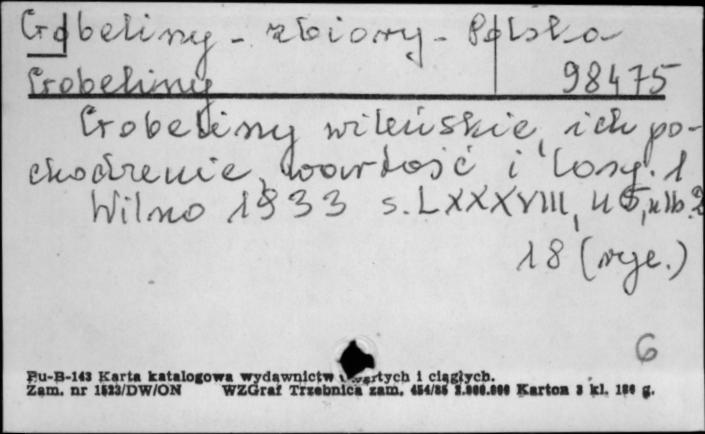 Gobeliny - zbiory - Polska
Gobeliny 98475
Gobeliny wileńskie, ich po-
chodzenie, wartość i losy. 1
Wilno 1933 s. LXXXVIII,
18 (ryc.)
6
Pu-B-143 Karta katalogowa wydawnictw i ciągłych.
Zam. nr 1523/DW/ON WZGraf Trzebnica zam. 454/85 2.000.000 Karton 3 kl. 180 g.